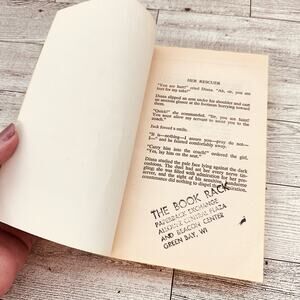 HER RESCUER
"You are hurt!" cried Diana. "Ah, sir, you are
hurt for my sake!"
Diana slipped an arm under his shoulder and cast
an anxious glance at the footman hurrying toward
them.
"Quick!" she commanded. "Sir, you are faint!
You must allow my servant to assist you to the
coach."
Jack forced a smile.
"It is—nothing—I assure you—pray do not—
I—" and he fainted comfortably away.
"Carry him into the coach!" ordered the girl.
"Yes, lay him on the seat."
Diana studied the pale face lying against the dark
cushions. The duel had set her every nerve
she was filled with admiration for her
and the sight of his sensitive,
countenance did nothing to dispel
THE BOOK RACK
PAPERBACK EXCHANGE
CENTRAL PLAZA
AND BEACON CENTER
GREEN BAY, WI